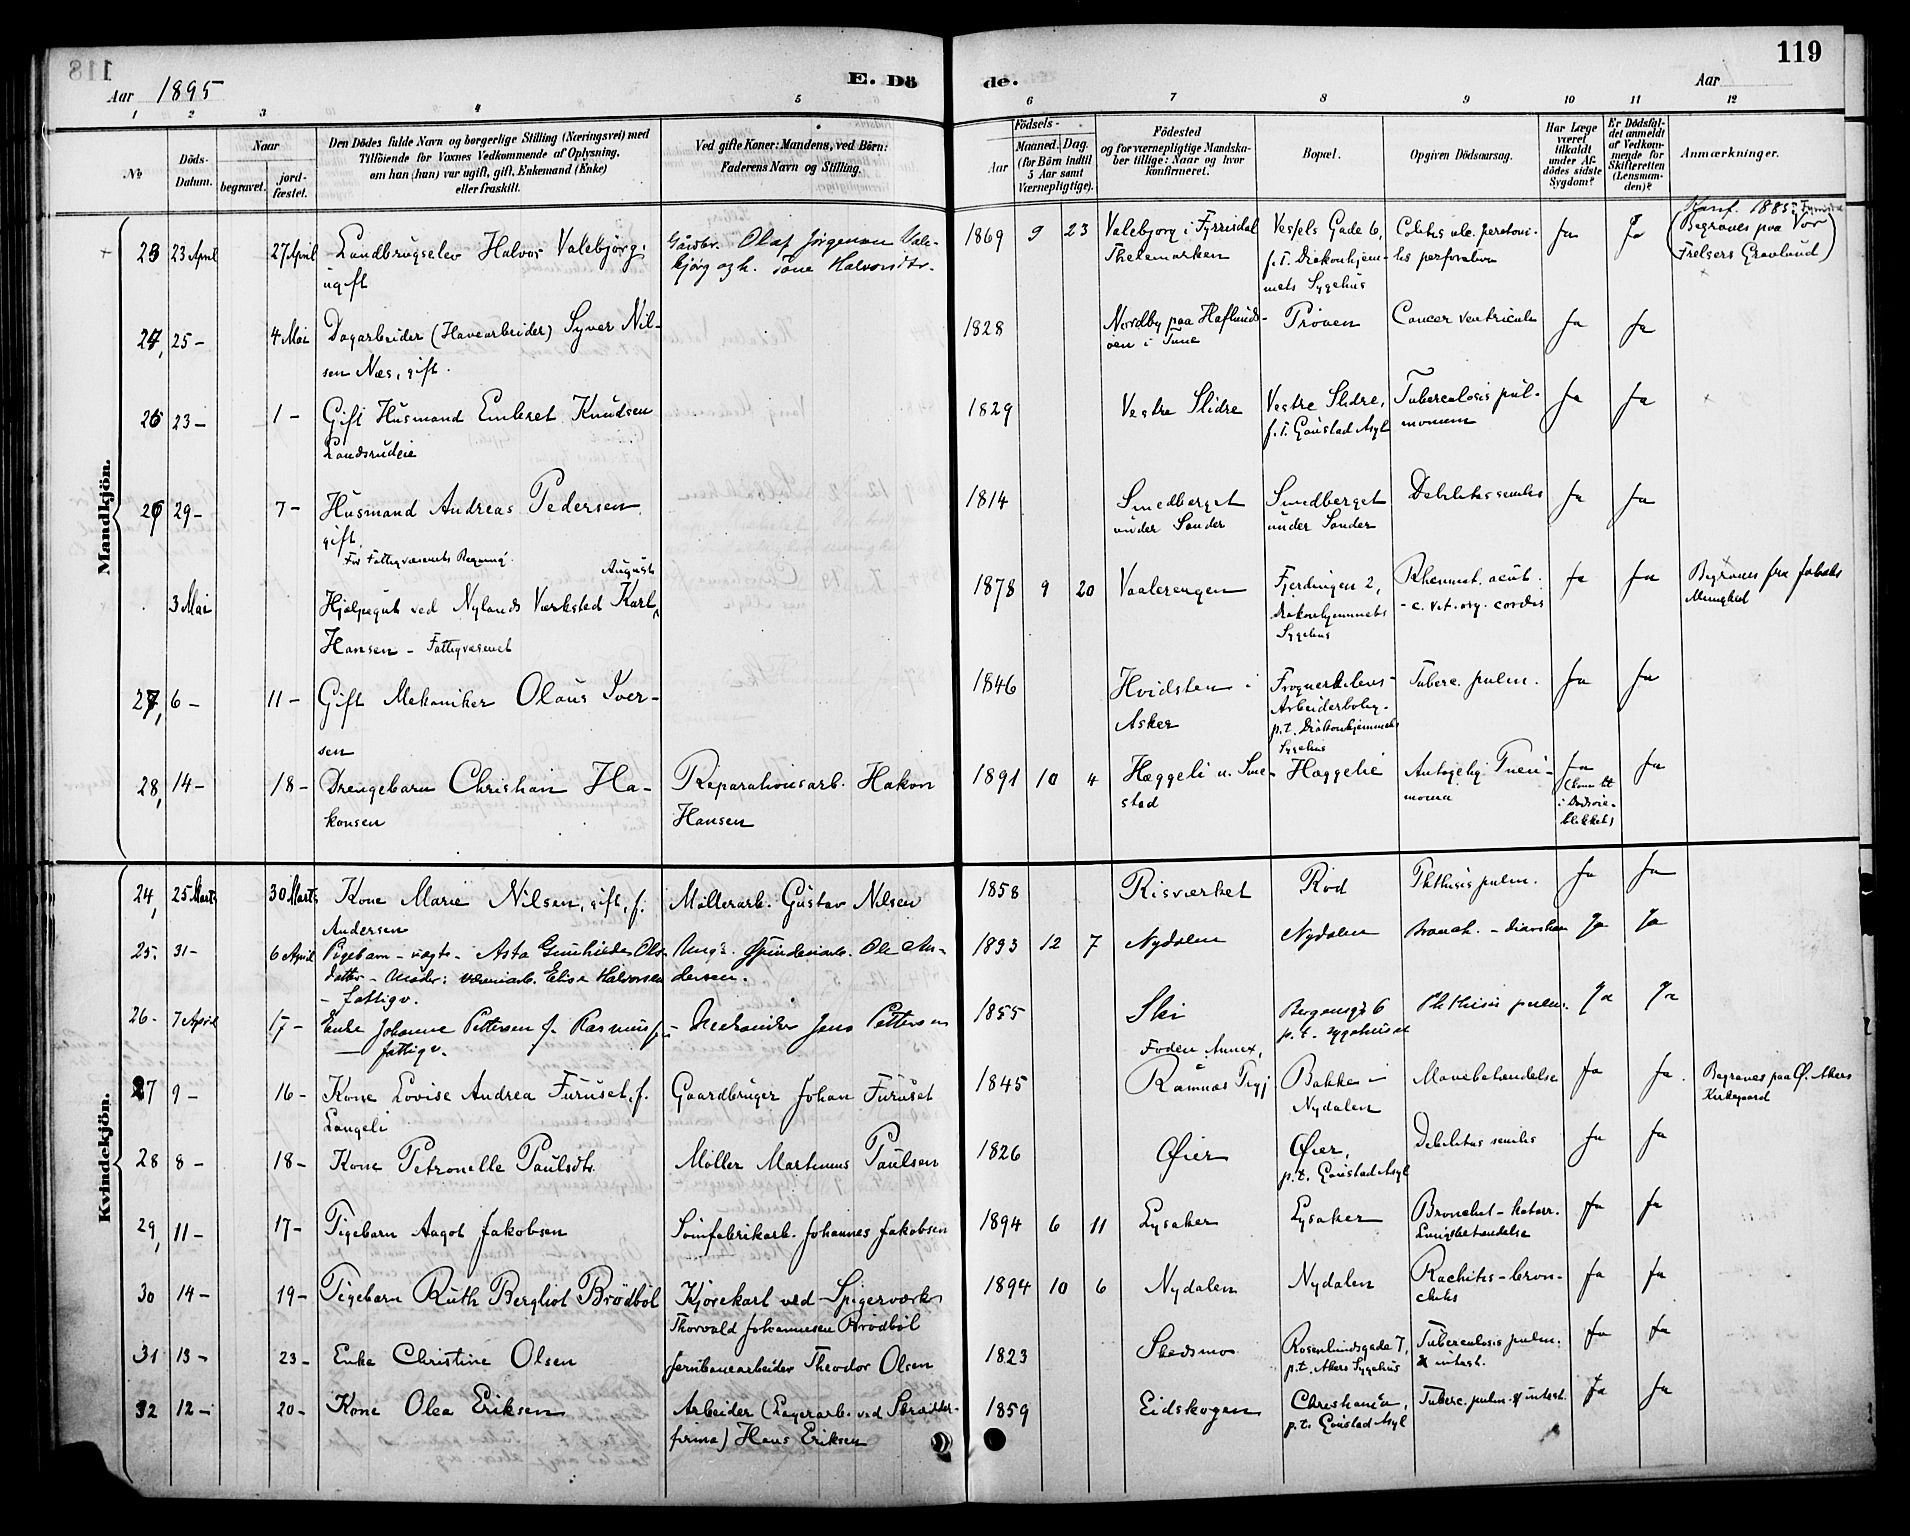 118
119
Aar 1895
E. Dö
de.
Aar
1 2 3 4 5 6 7 8 9 10 11 12
No
Döds-Datum.
Naar
begravet.
jord-fæstet.
Den Dödes fulde Navn og borgerlige Stilling (Næringsvei) med
Tilföiende for Voxnes Vedkommende af Oplysning,
om han (hun) var ugift, gift, Enkemand (Enke)
eller fraskilt.
Ved gifte Koner: Mandens, ved Börn:
Faderens Navn og Stilling.
Födsels-
Aar
Maaned. Dag.
(for Börn indtil
5 Aar samt
Værnepligtige).
Födested
og for værnepligtige Mandska-
ber tillige: Naar og hvor
konfirmeret.
Bopæl.
Opgiven Dödsaarsag.
Har Læge
været
tilkaldt
under Af-
dödes sidste
Sygdom?
Er Dödsfal-
det anmeldt
af Vedkom-
mende for
Skifteretten
(Lensman-
den)?
Anmærkninger.
Mandkjön.
23 23 April 27 April Landbrugselev Halvor Valebjørg, Gårdbr. Olaf Jørgensen Vale- 1869 9 23 Valebjorg i Fyrrisdal Vessels Gade 6, Colitis ulc. peritoni- Ja Ja Konf. 1885
ugift bjørg og h. Tone Halvorsdtr. Thelemarken p.T. Diakonhjem- tis perforativa (Begraves paa Vor
mets Sygehus Frelsers Gravlund)
24, 25 - 4 Mai Dagarbeider (Havearbeider) Syver Nil- 1828 Nordby paa Haflunds- Prøven Cancer ventriculi Ja Ja
sen Næs, gift. øen i Tune
25 23 - 1 - Gift Husmand Embret Knudsen 1829 Vestre Slidre Vestre Slidre, Tuberculosis pul- Ja Ja
Landsrudeie p.T. Gaustad Asyl monum
26 29 - 7 - Husmand Andreas Pedersen 1814 Smedberget Smedberget Debilitas senilis Ja Ja
gift. under Sander under Sander
For Fattigvæsenets Regning.
August
3 Mai Hjælpegut ved Nylands Værksted Karl 1878 9 20 Vaalerengen Fjerdingen 2, Rheumat. acut. Ja Ja Begraves fra Jakobs
Hansen - Fattigvæsenet Diakonhjemmets - c. vit. org. cordis Menighed
Sygehus
27, 6 - 11 - Gift Mekaniker Olaus Iver- 1846 Hvidsten i Frognerkilens- Tuberc. pulm. Ja Ja
sen Asker Arbeiderbolig.
p.t. Diakonhjemmets
Sygehus
28, 14 - 18 - Drengebarn Christian Ha- Reparationsarb. Hakon 1891 10 4 Hæggeli u. Sme- Hæggelie Antagelig Pneu- Ja Ja
konsen Hansen stad monia (kom til
i Dødsøie-
blikket)
Kvindekjön.
24, 25 Marts 30 Marts Kone Marie Nilsen, gift, f. Møllerarb. Gustav Nilsen 1858 Risværket Rød Phthisis pulm. Ja Ja
Andersen
25. 31 - 6 April Pigebarn - uægte - Asta Gunhilda Ols- Ungk. Spinderiarb. Ole An- 1893 12 7 Nydalen Nydalen Bronch. - diarrhea Ja Ja
datter - Moder: væveriarb. Elise Halvorsen dersen.
- fattigv.
26 - 7 April 17 - Enke Johanne Pettersen f. Rasmusf. - Mekaniker Jens Pettersen 1855 Ski Bergensgd 6 Phthisis pulm. Ja Ja
- fattigv. p.t. sygehuset
27 9 - 16 - Kone Lovise Andrea Furuset, f. Gaardbruger Johan Furuset 1845 Foden Annex, Bakke i Mavebetændelse Ja Ja Begraves paa Ø. Akers
Langeli Ramnæs Nydalen Kirkegaard
28 8 - 18 - Kone Petronelle Paulsdtr. Møller Martinus Paulsen 1826 Øier Øier, Debilitas senilis Ja Ja
p.t. Gaustad Asyl
29, 11 - 17 - Pigebarn Aagot Jakobsen Sømfabrikarb. Johannes Jakobsen 1894 6 11 Lysaker Lysaker Bronchit - katarr. Ja Ja
Lungebetændelse
30 14 - 19 - Pigebarn Ruth Bergliot Brødbøl Kjørekarl ved Spigerværk 1894 10 6 Nydalen Nydalen Rachitis - bron- Ja Ja
Thorvald Johannesen Brødbøl chitis
31 13 - 23 - Enke Christine Olsen Jernbanearbeider Theodor Olsen 1823 Skedsmo Rosenlundsgade 7, Tuberculosis pulm. Ja Ja
p.t. Akers Sygehus & intest.
32 12 - 20 - Kone Olea Eriksen Arbeider (Lagerarb. ved 1859 Eidskogen Christiania, Tuberc. pulm. & intest. Ja Ja
firma) Hans Eriksen p.t. Gaustad Asyl